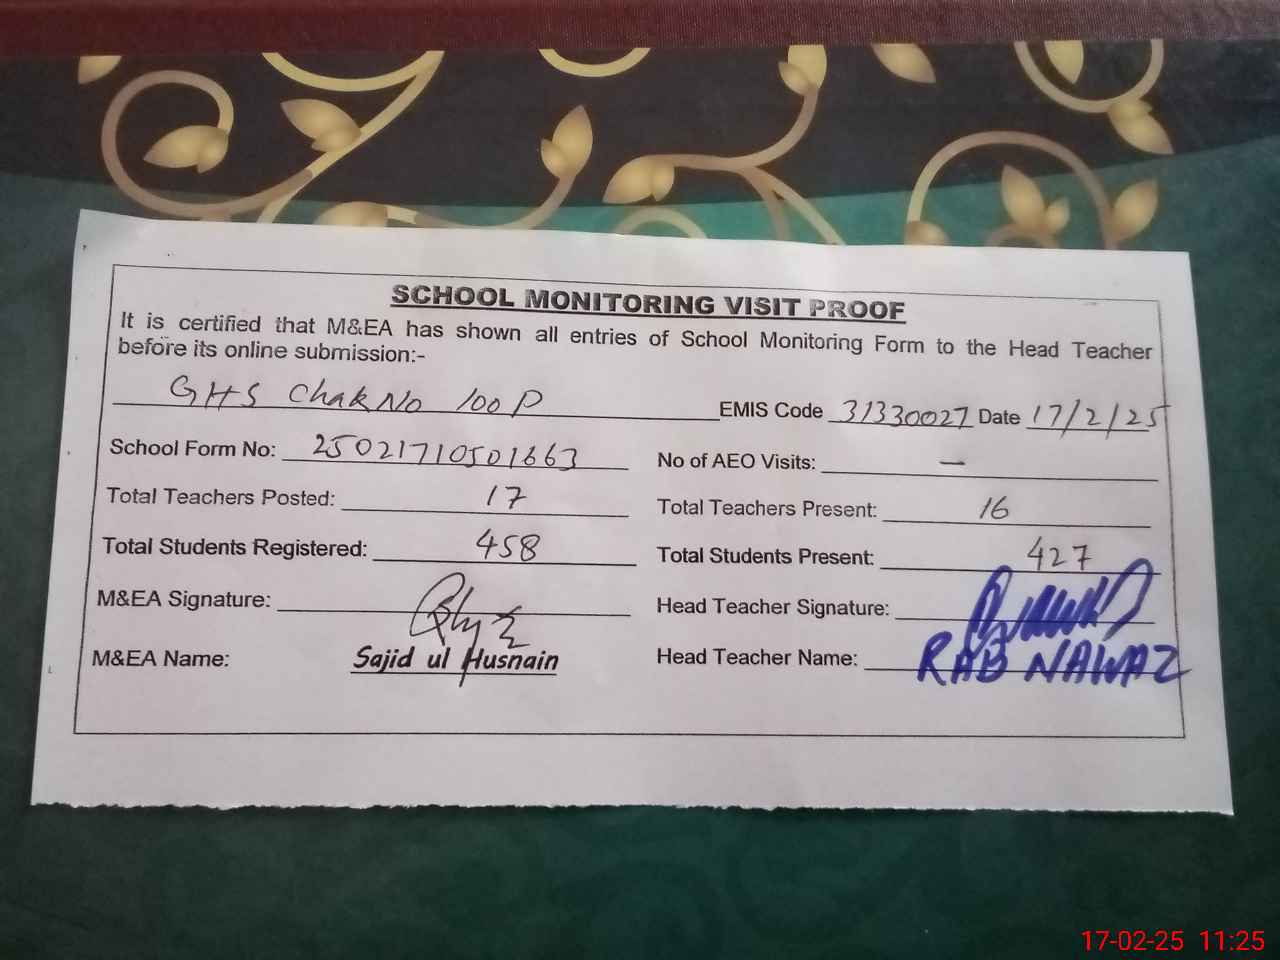 SCHOOL MONITORING VISIT PROOF
It is certified that M&EA has shown all entries of School Monitoring Form to the Head Teacher
before its online submission:-
GHS Chak No 100 P EMIS Code 31330027 Date 17/2/25
School Form No: 25021710501663 No of AEO Visits: —
Total Teachers Posted: 17 Total Teachers Present: 16
Total Students Registered: 458 Total Students Present: 427
M&EA Signature: Head Teacher Signature:
M&EA Name: Sajid ul Husnain Head Teacher Name: RAB NAWAZ
17-02-25 11:25